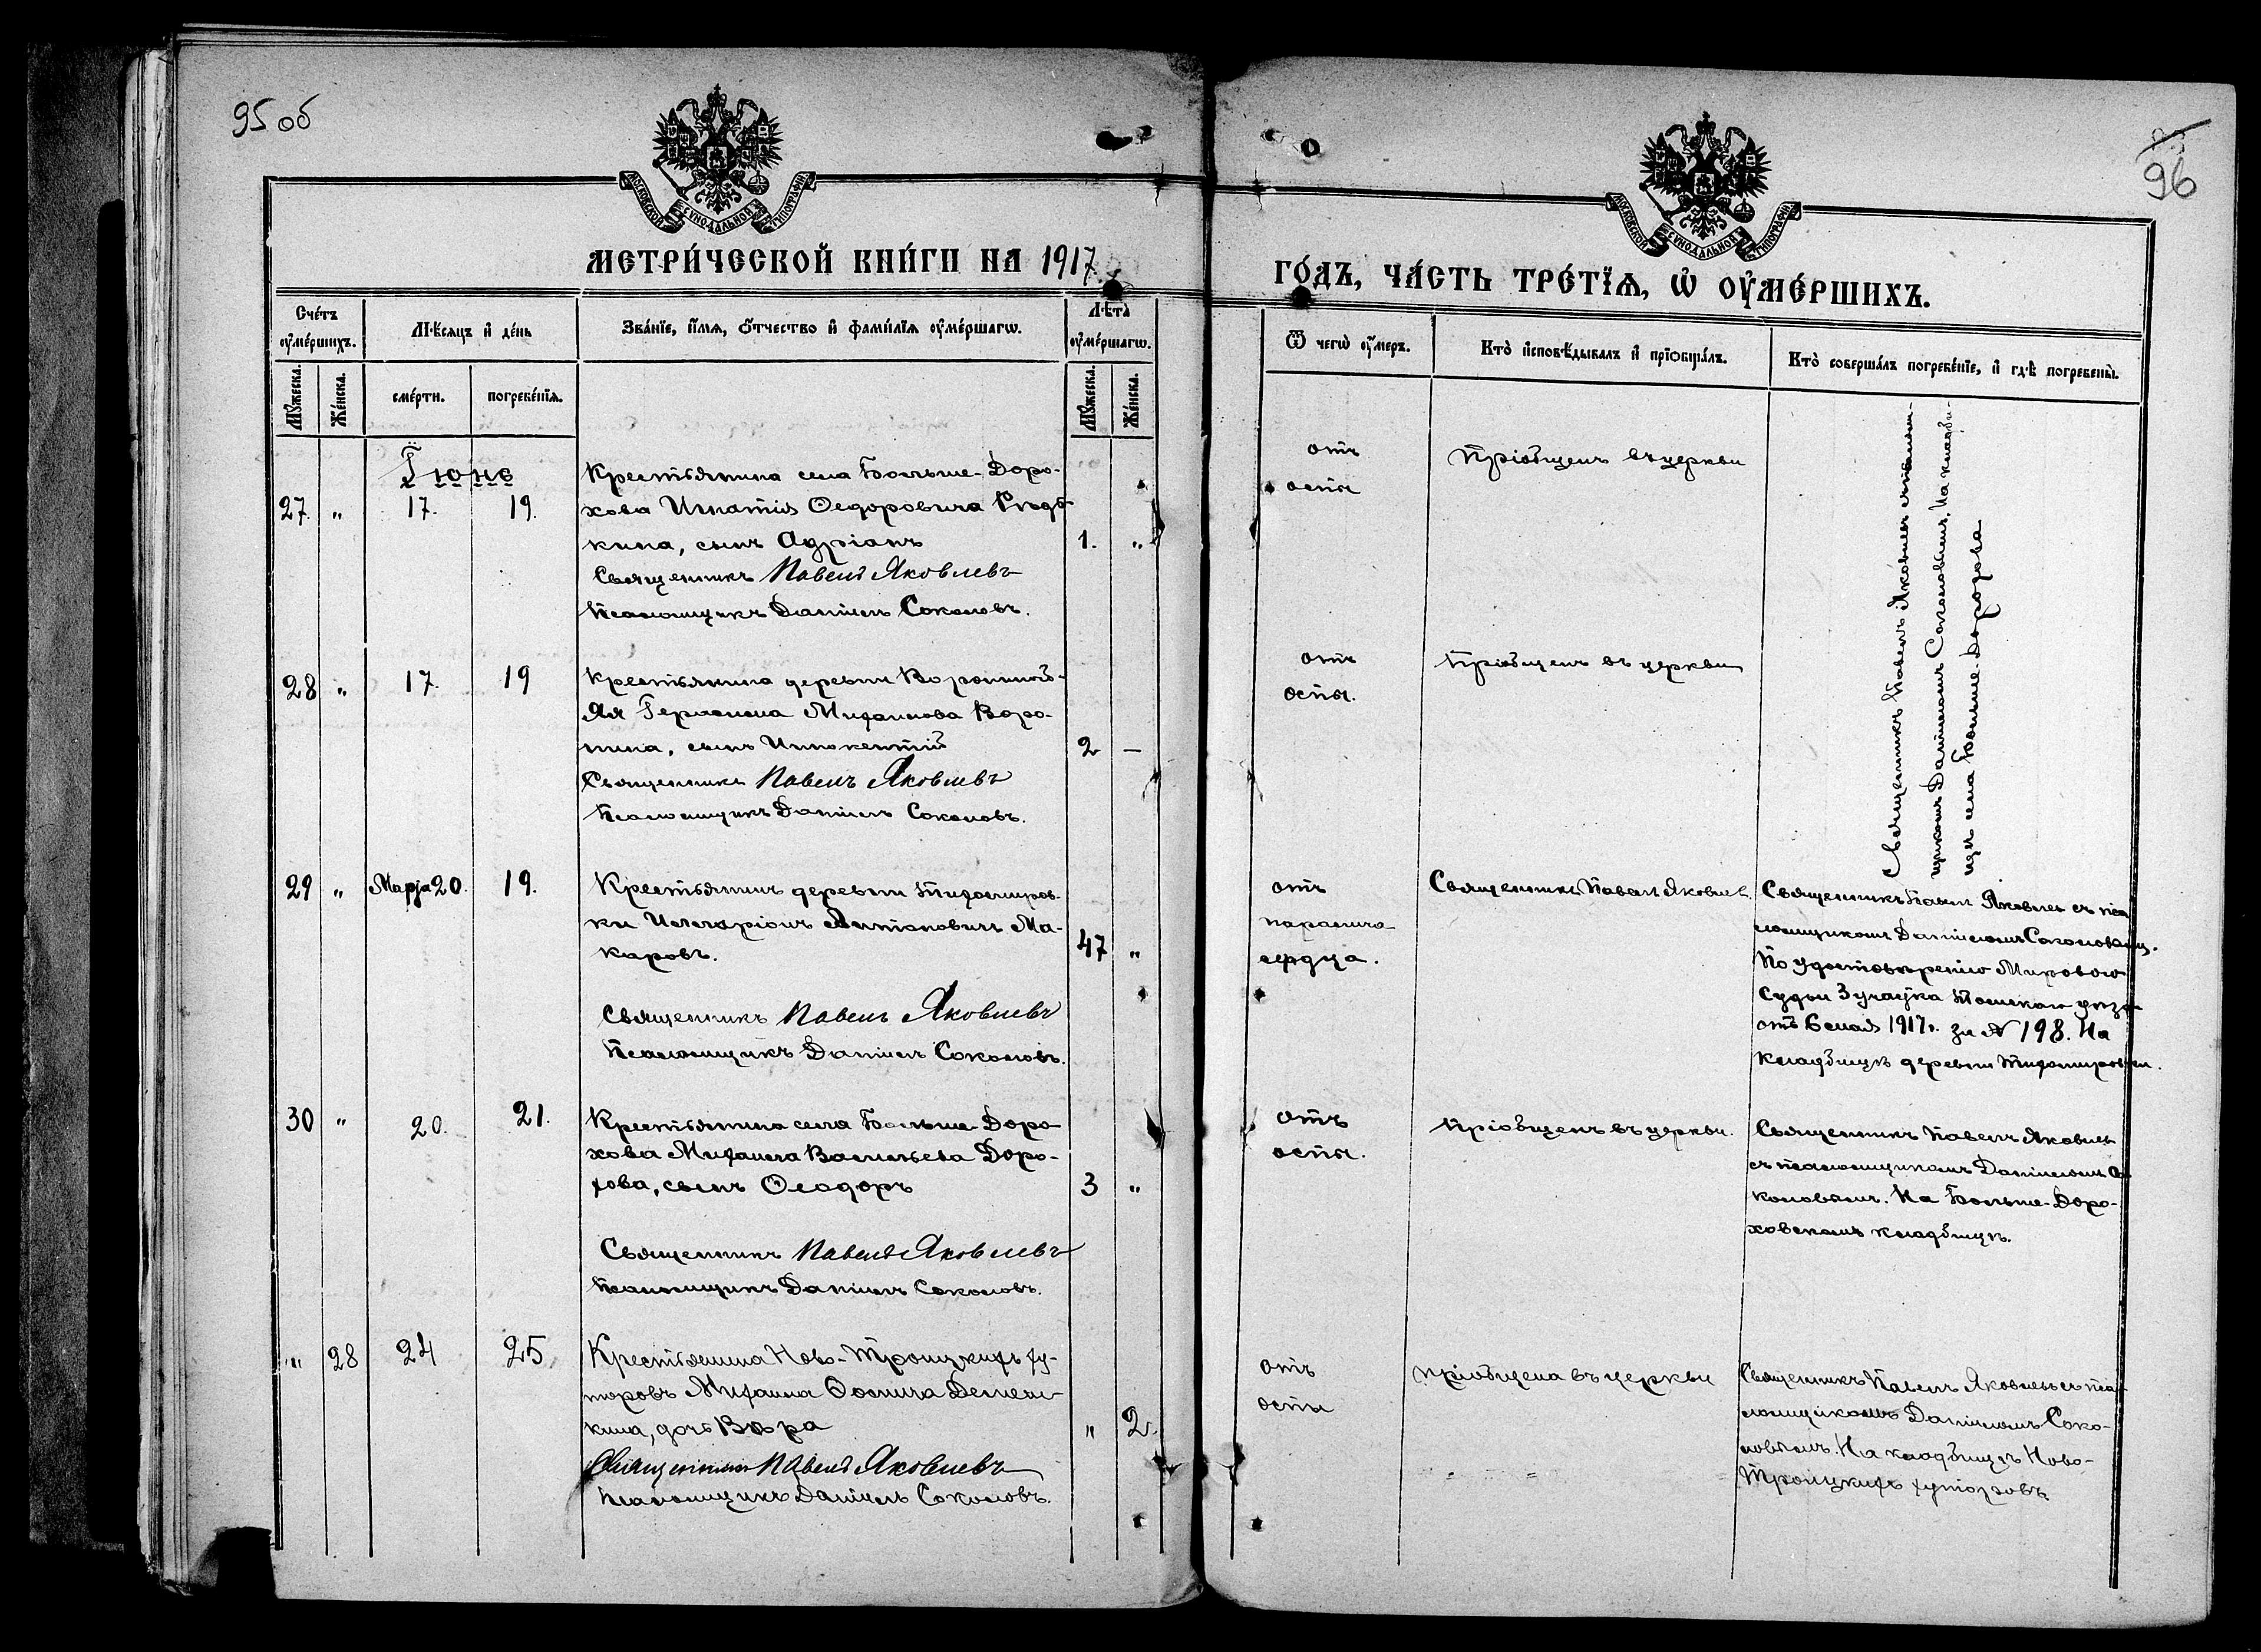 95 об
96
МОСКОВСКОЙ СУНОДАЛЬНОЙ ТИПОГРАФІИ
МОСКОВСКОЙ СУНОДАЛЬНОЙ ТИПОГРАФІИ
МЕТРИ́ЧЕСКОЙ КНИ́ГИ НА 1917
ГО́ДЪ, ЧА́СТЬ ТРЕ́ТІѦ, Ѡ ОУ҆МЕ́РШИХЪ.
Сче́тъ оу҆ме́ршихъ.
Мѣ́сяцъ и҆ де́нь
Зва́нїе, и҆́мѧ, ѻ҆́тчество и҆ фами́лїѧ оу҆ме́ршагѡ.
Лѣ́та оу҆ме́ршагѡ.
Ѿ чегѡ̀ оу҆́меръ.
Кто̀ и҆сповѣ́дывалъ и҆ прїѡбща́лъ.
Кто̀ соверша́лъ погребе́нїе, и҆ гдѣ̀ погребены̀.
Му́жеска.
Же́нска.
сме́рти.
погребе́нїѧ.
Му́жеска.
Же́нска.
Іюнь
27. " 17. 19.
Крестьянина села Больше-Доро-
хова Игнатія Ѳедоровича Рѣдь-
кина, сынъ Адріанъ
1. "
Священникъ Павелъ Яковлевъ
Псаломщикъ Даніилъ Соколовъ.
отъ
оспы
Пріобщенъ въ церкви
Священникъ Павелъ Яковлевъ съ псалом-
щикомъ Даніиломъ Соколовымъ. На кладби-
щѣ села Больше-Дорохова
28 " 17. 19
Крестьянина деревни Воронино-
Яя Германа Михаилова Воро-
нина, сынъ Иннокентій
2 —
Священникъ Павелъ Яковлевъ
Псаломщикъ Даніилъ Соколовъ.
отъ
оспы.
Пріобщенъ въ церкви
29 " Марта 20. 19.
Крестьянинъ деревни Тихомиров-
ки Антоновичъ Ма-
каровъ.
47 "
Священникъ Павелъ Яковлевъ
Псаломщикъ Даніилъ Соколовъ.
отъ
паралича
сердца.
Священникъ Павелъ Яковлев.
Священникъ Павелъ Яковлевъ съ пса
ломщикомъ Даніиломъ Соколовымъ.
По удостовѣренію Мирового
Судьи 3 участка Томскаго уѣзда
отъ 6 мая 1917г. за № 198. На
кладбищѣ деревни Тихомировки.
30 " 20. 21.
Крестьянина села Больше-Доро-
хова Михаила Васильева Доро-
хова, сынъ Ѳеодоръ
3 "
Священникъ Павелъ Яковлевъ
Псаломщикъ Даніилъ Соколовъ.
отъ
оспы.
Пріобщенъ въ церкви.
Священникъ Павелъ Яковлевъ
съ псаломщикомъ Даніиломъ Со
коловымъ. На Больше-Доро-
ховскомъ кладбищѣ.
" 28 24 25
Крестьянина Ново-Троицкихъ ху-
торовъ Михаила Ѳомича Демеш-
кина, дочь Вѣра
" 2.
Священникъ Павелъ Яковлевъ
Псаломщикъ Даніилъ Соколовъ.
отъ
оспы
Пріобщена въ церкви
Священникъ Павелъ Яковлевъ съ пса-
ломщикомъ Даніиломъ Соко-
ловымъ. На кладбищѣ Ново-
Троицкихъ хуторовъ